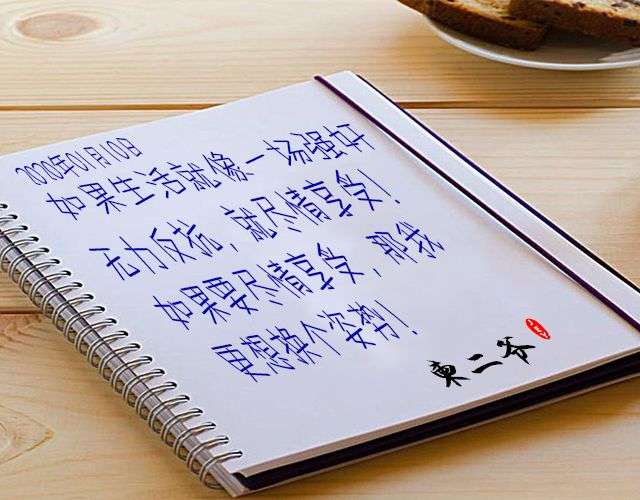 2020年01月10日
如果生活就像一场强奸
无力反抗，就尽情享受！
如果要尽情享受，那我
更想换个姿势！
東二爷